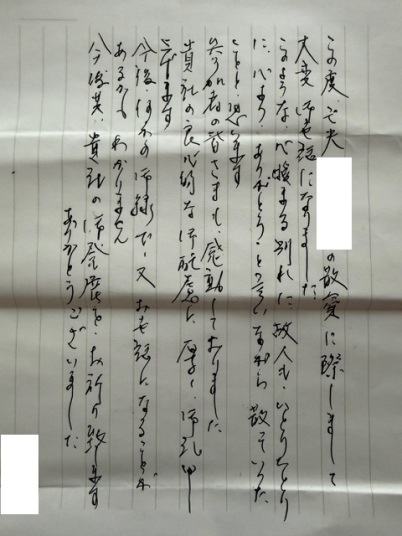 この度 亡夫 の散骨に際しまして
大変 御世話になりました
このような 心媛まる別れに 故人も、ひとりひとり
に、心より、ありがとうと言いながら 散っていった
ことと思います
参加者の皆さまも、感動しておりました
貴社の良心的な御配慮に 厚く 御礼申し
上げます
今後 何かの御縁で 又 お世話になることが
あるかも わかりません
今後共 貴社の御発展を お祈り致します
ありがとうございました